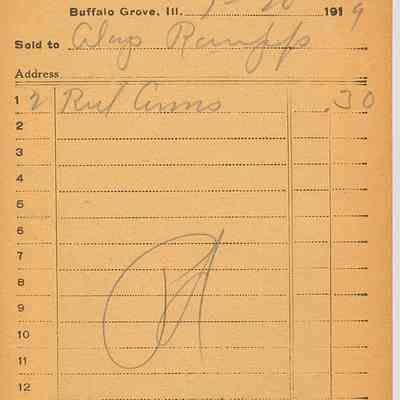 Buffalo Grove, Ill. 191 9
Sold to Alays Rampp
Address
1 2 Rul Arms .30
2
3
4
5
6
7
8
9
10
11
12